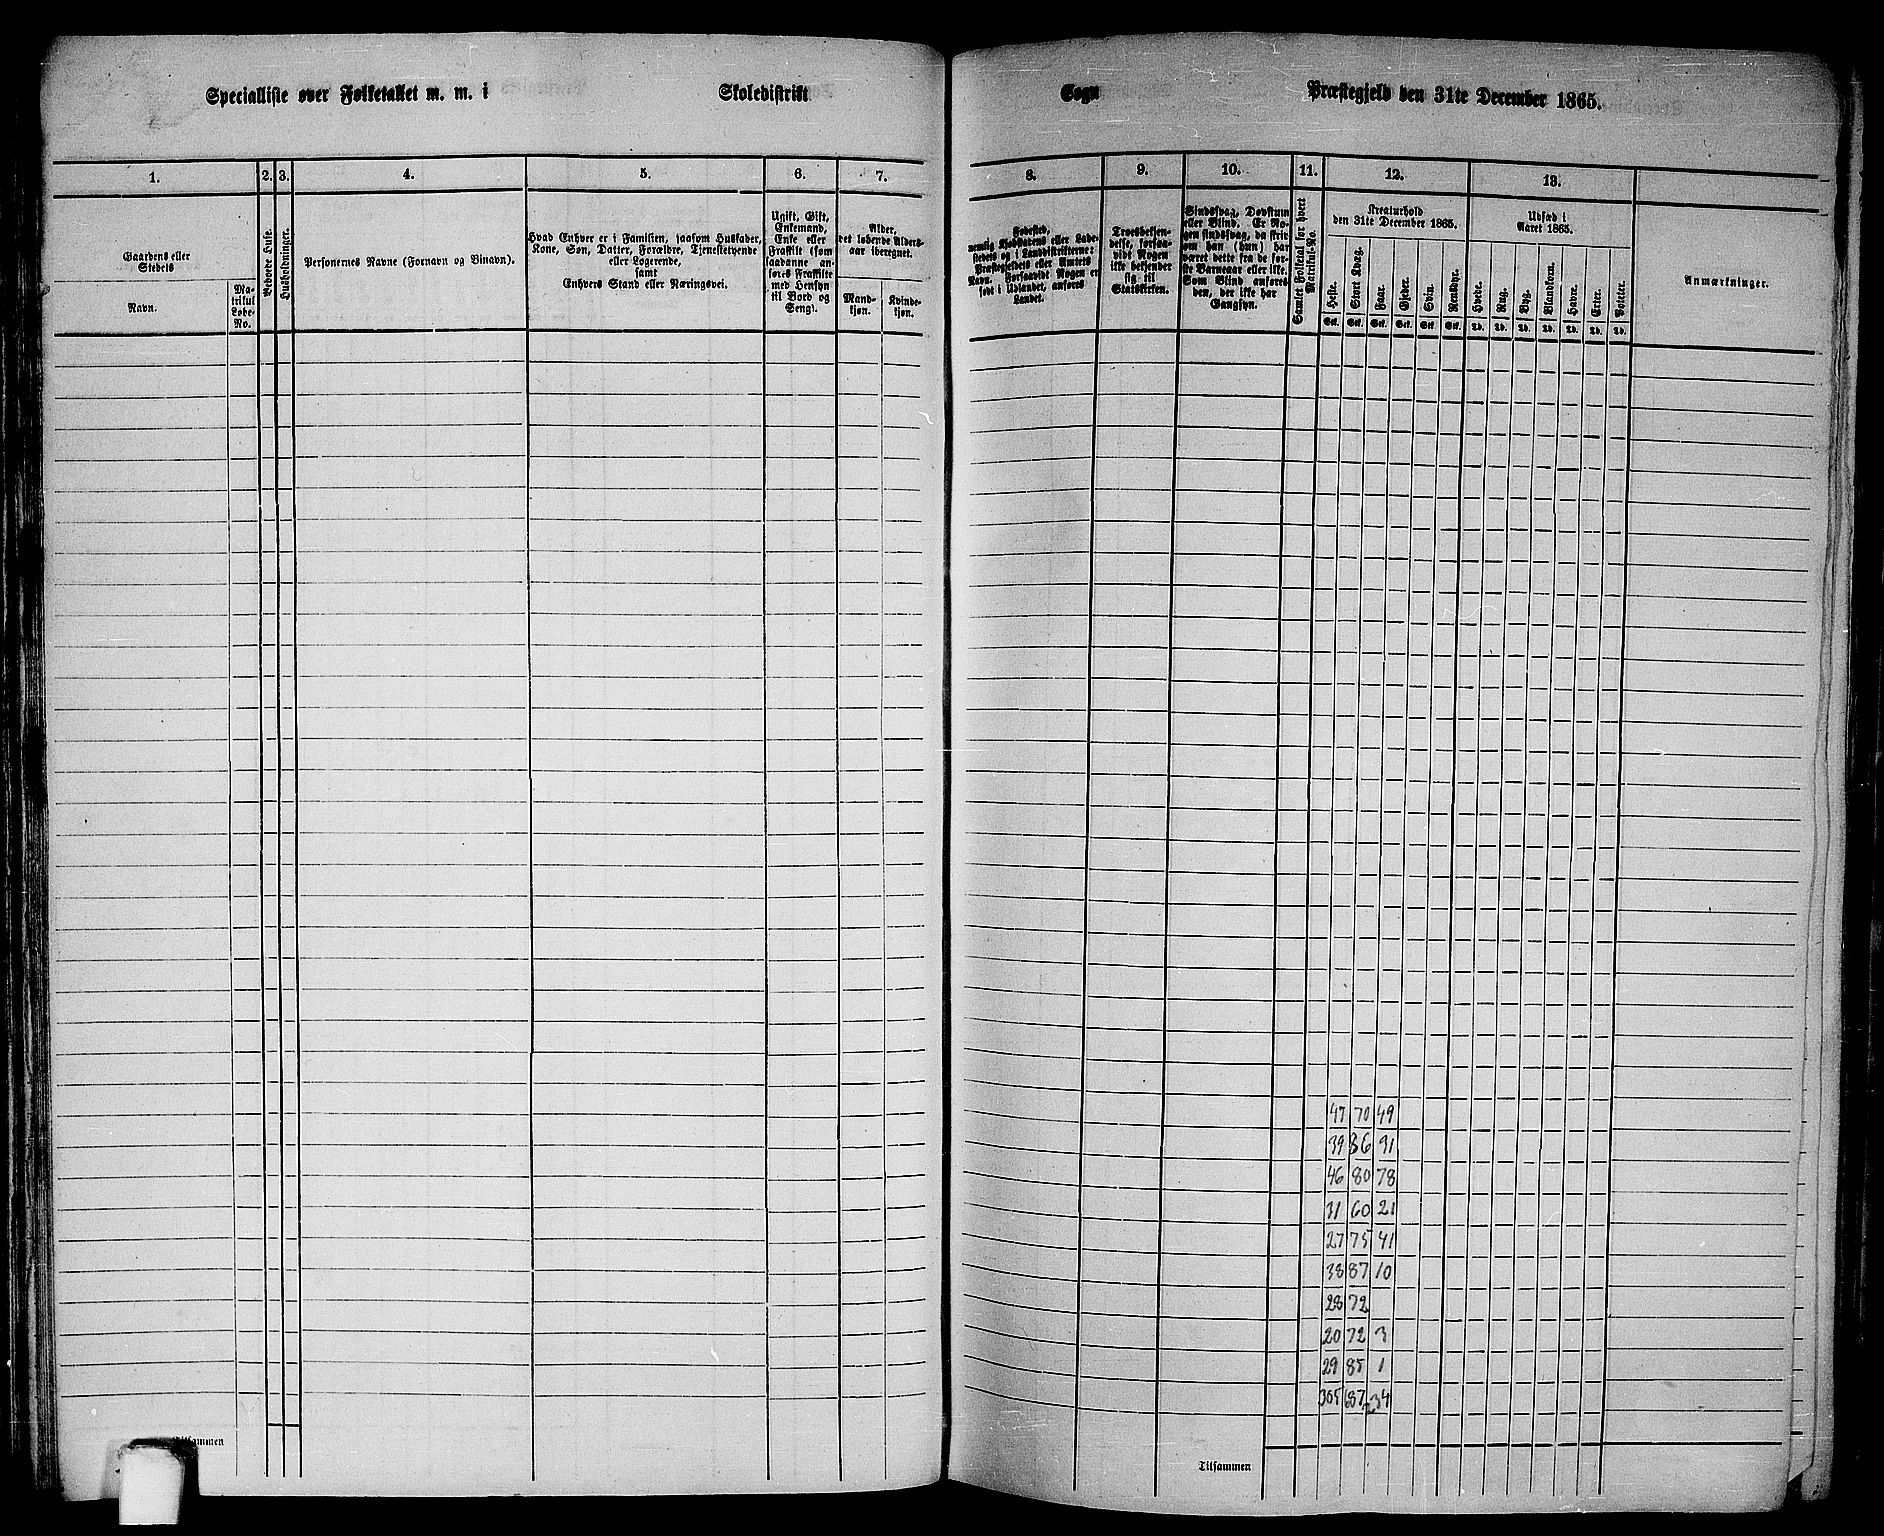 Specialliste over Folketallet m. m. i Skoledistrikt Sogn Præstegjeld den 31te December 1865.
1. 2. 3. 4. 5. 6. 7. 8. 9. 10. 11. 12. 13.
Gaardens eller
Stedets
Navn.
Ma-
trikul
Løbe-
No.
Beboede Huse.
Husholdninger.
Personernes Navne (Fornavn og Binavn).
Hvad Enhver er i Familien, saasom Husfader,
Kone, Søn, Datter, Forældre, Tjenestetyende
eller Logerende,
samt
Enhvers Stand eller Næringsvei.
Ugift, Gift,
Enkemand,
Enke eller
Fraskilt (som
saadanne an-
føres Fraskilte
med Hensyn
til Bord og
Seng).
Alder,
det løbende Alders-
aar iberegnet.
Mand-
kjøn.
Kvinde-
kjøn.
Fødested,
nemlig Kjøbstadens eller Lade-
stedets og i Landdistrikterne:
Præstegjeldets eller Amtets
Navn. Forsaavidt Nogen er
født i Udlandet, anføres
Landet.
Troesbekjen-
delse, forsaa-
vidt Nogen
ikke bekjender
sig til
Statskirken.
Sindssvag, Døvstum
eller Blind. Er No-
gen sindssvag, da skriv
om han (hun) har
været dette fra de før-
ste Barneaar eller ikke.
Som Blind anføres
den, der ikke har
Gangsyn.
Samlet Folketal for hvert
Matrikul-No.
Kreaturhold
den 31te December 1865.
Heste.
Stort Kvæg.
Faar.
Gjeder.
Svin.
Rensdyr.
Stk. Stk. Stk. Stk. Stk. Stk.
Udsæd i
Aaret 1865.
Hvede.
Rug.
Byg.
Blandkorn.
Havre.
Erter.
Poteter.
Td. Td. Td. Td. Td. Td. Td.
Anmærkninger.
47 70 49
39 86 31
46 80 78
31 60 21
27 75 41
38 87 10
28 72
20 72 3
29 85 1
305 687 234
Tilsammen
Tilsammen